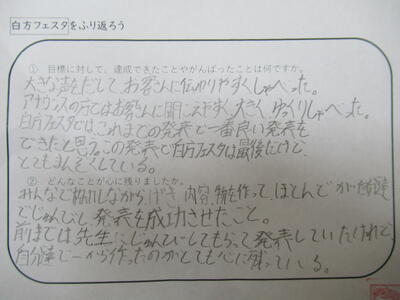 白方フェスタをふり返ろう
① 目標に対して、達成できたことやがんばったことは何ですか。
大きな声をだして、お客さんに伝わりやすくしゃべった。
アナウンスの方ではお客さんに聞こえやすく大きく、ゆっくりしゃべった。
白方フェスタではこれまでの発表で一番良い発表を
できたと思う。この発表で白方フェスタは最後だけど、
とてもまんぞくしている。
② どんなことが心に残りましたか。
みんなで協力しながら、げき、内容、物を作って、ほとんどが自分達
でじゅんびし、発表を成功させたこと。
前までは、先生にじゅんびしてもらって発表していたけれど、
自分達で一から作ったのがとても心に残っている。